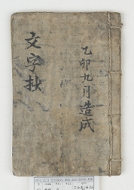 乙卯九月造成
文字抄